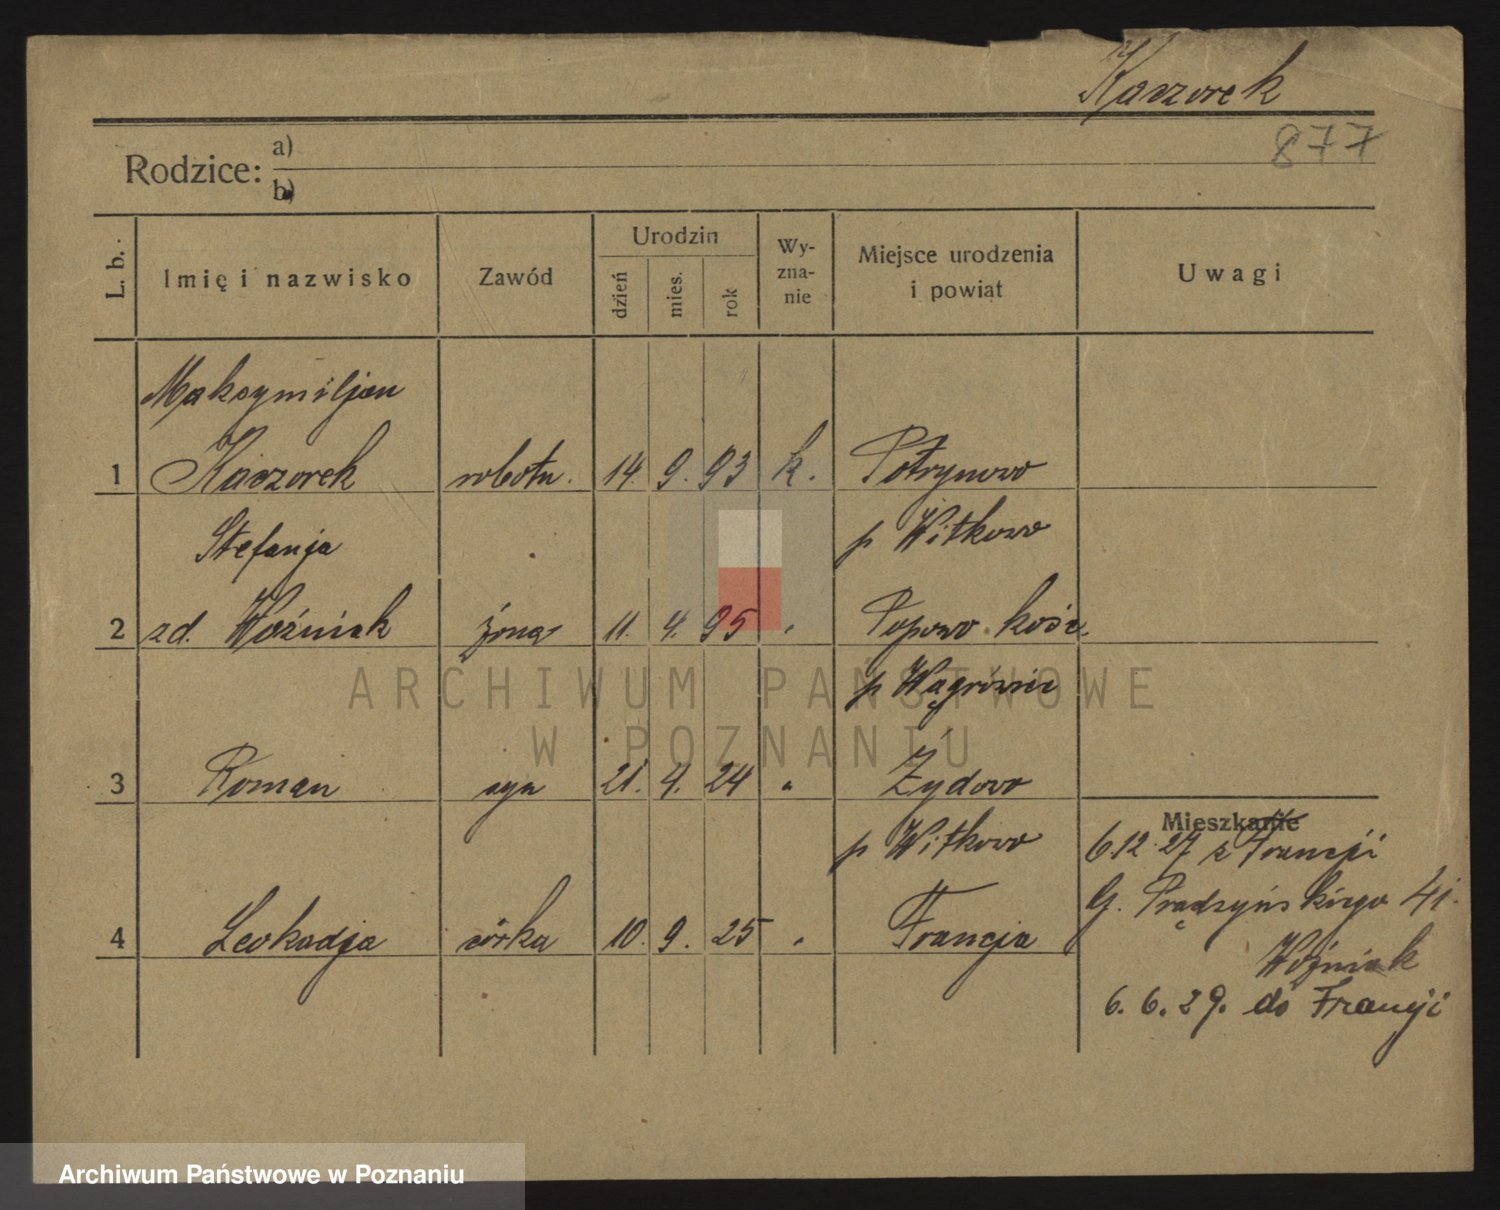 Kaczorek
877
Rodzice: a)
b)
L. b. Imię i nazwisko Zawód Urodzin dzień mies. rok Wy-zna-nie Miejsce urodzenia i powiat Uwagi
Maksymiljan
1 Kaczorek robotn. 14. 9. 93 k. Potrymowo
Stefanja p Witkowo
2 zd. Woźniak żona 11. 4. 95 " Popowo kośc.
p Wągrówiec
3 Roman syn 21. 4. 24 " Żydowo
Mieszkanie
p Witkowo 6.12 27 z Francji
G. Prądzyńskiego 41.
4 Leokadja córka 10. 9. 25 " Francja
Woźniak
6. 6. 29. do Francji
ARCHIWUM PAŃSTWOWE
W POZNANIU
Archiwum Państwowe w Poznaniu